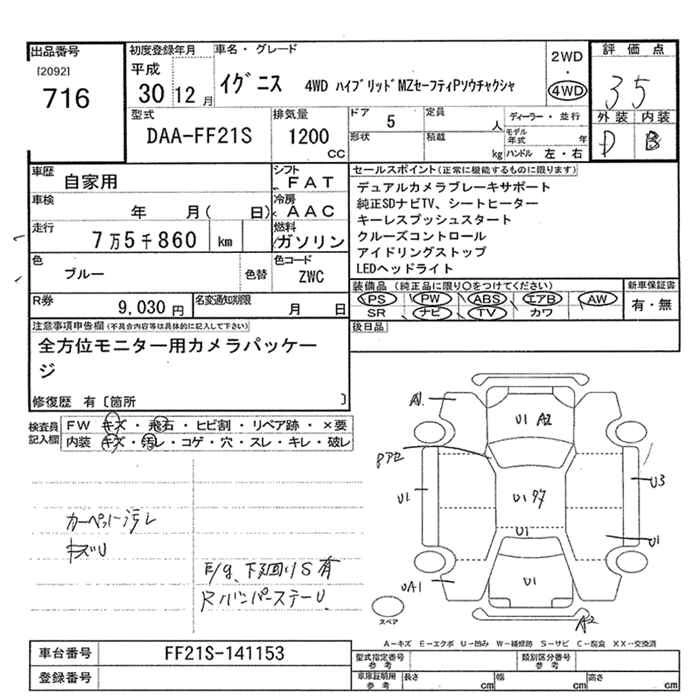 出品番号
[2092]
716
初度登録年月
平成
30 12 月
車名・グレード
イグニス 4WD ハイブリッドMZセーフティPソウチャクシャ
2WD
・
4WD
評価点
35
外装 内装
D B
型式
DAA-FF21S
排気量
1200
CC
ドア 5
形状
定員 人
積載 kg
ディーラー・並行
モデル年式 年
ハンドル 左・右
車歴
自家用
シフト
FAT
車検
年 月( 日)
冷房
AAC
走行
7万5千860 km
燃料
ガソリン
色
ブルー
色替
色コード
ZWC
R券
9,030円
名変通知期限
月 日
セールスポイント(正常に機能するものに限ります)
デュアルカメラブレーキサポート
純正SDナビTV、シートヒーター
キーレスプッシュスタート
クルーズコントロール
アイドリングストップ
LEDヘッドライト
装備品 (純正品に限り○をつけてください)
新車保証書
PS PW ABS エアB AW
有・無
SR ナビ TV カワ
後日品
注意事項申告欄(不具合内容等は具体的に記入して下さい)
全方位モニター用カメラパッケー
ジ
修復歴 有〔箇所 〕
検査員
記入欄
FW キズ・飛石・ヒビ割・リペア跡・×要
内装 キズ・汚レ・コゲ・穴・スレ・キレ・破レ
カーペットに汚レ
キズU
E/g、下回りS有
RバンパーステーU
A1
U1 A2
U1
U3
U1
U1
U1
U1
UA1
A2
スペア
A-キズ E-エクボ U-凹み W-補修跡 S-サビ C-腐食 XX-交換済
車台番号
FF21S-141153
登録番号
型式指定番号
参考
類別区分番号
参考
車庫証明用
参考
長さ cm
幅 cm
高さ cm